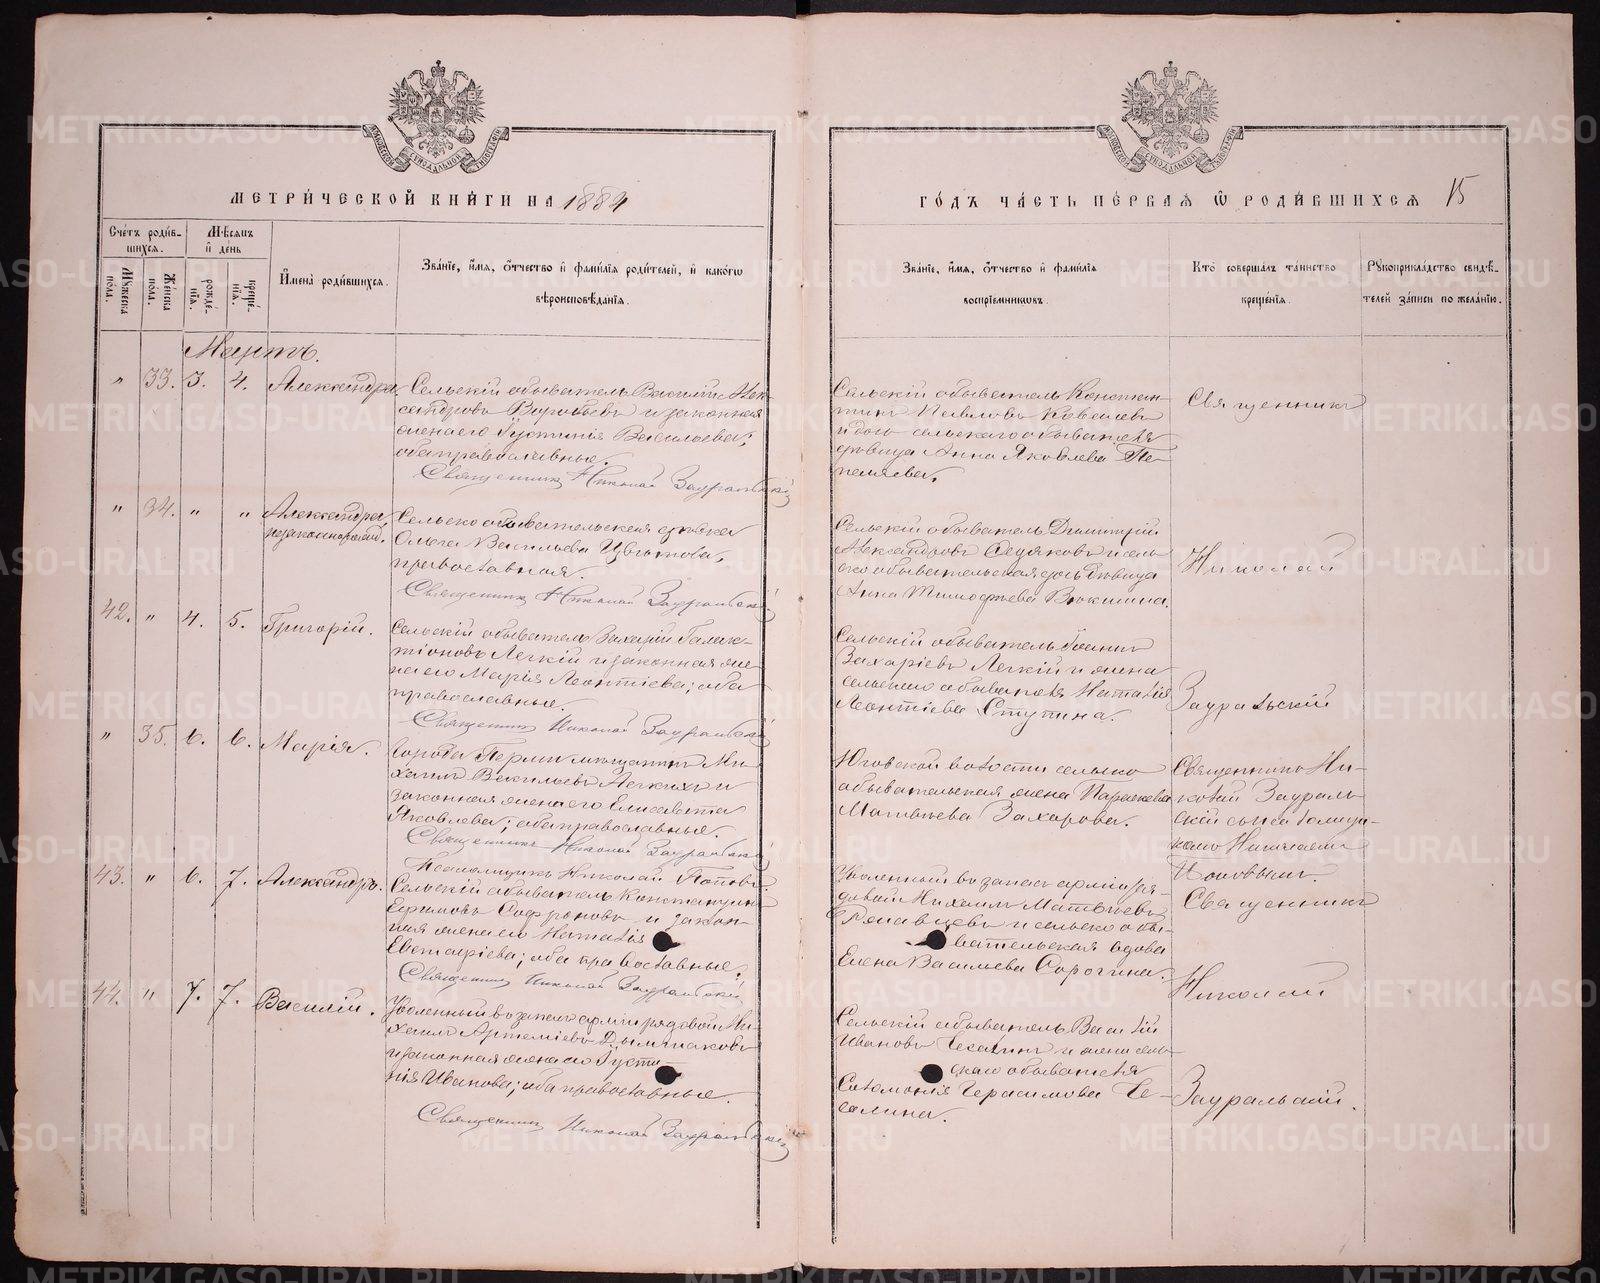 МЕТРИ́ЧЕСКОЙ КНИ́ГИ НА 1884
ГО́ДЪ ЧА́СТЬ ПЕ́РВАЯ Ѿ РОДИ́ВШИХСЯ 15
Сче́тъ роди́в-
шихся.
Мѣ́сяцъ
и҆ де́нь
Мꙋ́жеска
пола.
Же́нска
пола.
рожде́-
нїѧ.
креще́-
нїѧ.
И҆мена̀ роди́вшихся.
Зва́нїе, и҆́мя, ѻ҆́тчество и҆ фами́лїя роди́телей, и҆ како́гѡ
вѣроисповѣ́данїя.
Зва́нїе, и҆́мя, ѻ҆́тчество и҆ фами́лїя
воспрїе́мниковъ.
Кто̀ соверша́лъ та́инство
креще́нїя.
Рꙋкоприкла́дство свидѣ́-
телей за́писи по жела́нїю.
Мартъ.
" 33. 3. 4. Александра.
Сельскій обыватель Василій Алек-
сандровъ Воробьевъ и законная
жена его Іустинія Васильева;
оба православные.
Священникъ Николай Зауральскій
Сельскій обыватель Констан-
тинъ Павловъ Ковалевъ
и дочь сельскаго обывателя
дѣвица Анна Яковлева Пе-
пеляева.
Священникъ
" 34. " " Александра,
незаконнорожд.
Сельско обывательская дѣвка
Ольга Васильева Цвѣткова,
православная.
Священникъ Николай Зауральскій
Сельскій обыватель Димитрій
Александровъ Седяковъ и сель-
ско обывательская дочь дѣвица
Анна Тимофѣева Вяткина.
Николай
42. " 4. 5. Григорій.
Сельскій обыватель Захарій Галак-
тіоновъ Легкій и законная же-
на его Марія Леонтіева; оба
православные.
Священникъ Николай Зауральскій
Сельскій обыватель Іоаннъ
Захаріевъ Легкій и жена
сельскаго обывателя Наталія
Леонтіева Ступина.
Зауральскій
" 35. 6. 6. Марія.
Города Перми мѣщанинъ Ми-
хаилъ Васильевъ Легкихъ и
законная жена его Елисавета
Яковлева; оба православные.
Священникъ Николай Зауральскій
Псаломщикъ Николай Поповъ.
Юговской волости сельско
обывательская жена Параскева
Матвѣева Захарова.
Священникъ Ни-
колай Заураль-
скій съ псаломщи-
комъ Николаемъ
Поповымъ.
43. " 6. 7. Александръ.
Сельскій обыватель Константинъ
Ефимовъ Софроновъ и закон-
ная жена его Наталія
Евстафіева; оба православные.
Священникъ Николай Зауральскій
Уволенный въ запасъ арміи ря-
довой Михаилъ Матвѣевъ
и сельско обы-
вательская вдова
Елена Васильева Сорогина.
Священникъ
Николай
44. " 7. 7. Василій.
Уволенный въ запасъ арміи рядовой Ми-
хаилъ Артеміевъ Дылдаковъ
и законная жена его Іусти-
нія Иванова; оба православные.
Священникъ Николай Зауральскій
Сельскій обыватель Василій
Ивановъ Чезалинъ и жена сель-
скаго обывателя
Соломонія Герасимова Че-
залина.
Зауральскій.